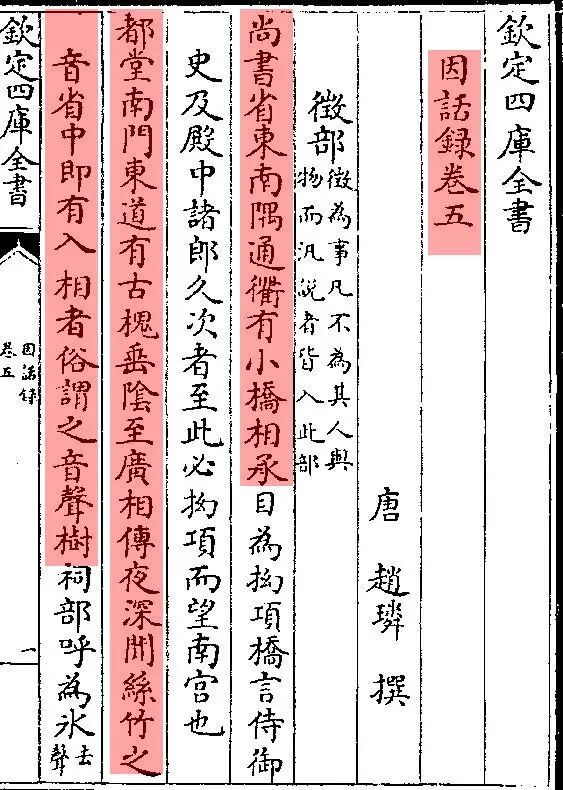 欽定四庫全書
因話録卷五
唐 趙璘 撰
徵部徵為事凡不為其人與
物而汎説者皆入此部
尚書省東南隅通衢有小橋相承目為拗項橋言侍御
史及殿中諸郎久次者至此必拗項而望南宫也
都堂南門東道有古槐垂陰至廣相傳夜深聞絲竹之
音省中即有入相者俗謂之音聲樹祠部呼為氷去聲
欽定四庫全書
因話録
卷五
一